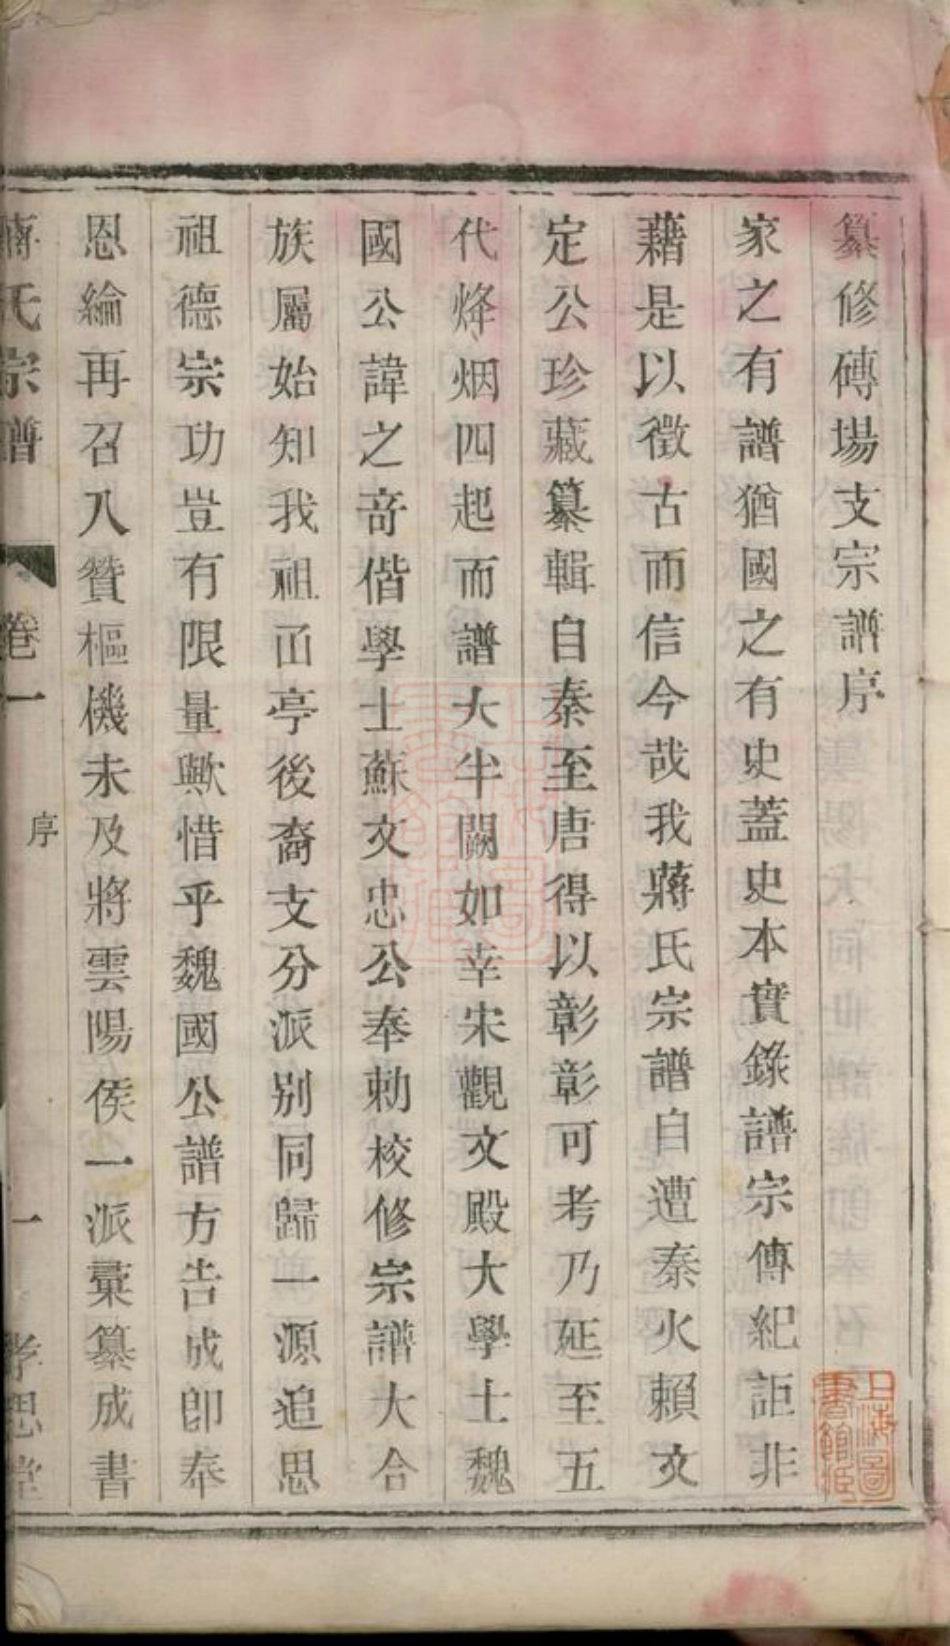 纂修磚場支宗譜序
家之有譜猶國之有史蓋史本實錄譜宗傳紀詎非
藉是以徵古而信今哉我蔣氏宗譜自遭秦火賴文
定公珍藏纂輯自秦至唐得以彰彰可考乃延至五
代烽烟四起而譜大半闕如幸宋觀文殿大學士魏
國公諱之竒偕學士蘇文忠公奉勅校修宗譜大合
族屬始知我祖㓊亭後裔支分派别同歸一源追思
祖德宗功豈有限量歟惜乎魏國公譜方告成卽奉
恩綸再召入贊樞機未及將雲陽侯一派彚纂成書
蔣氏宗譜 卷一 序 一 孝思堂
上海圖書館藏